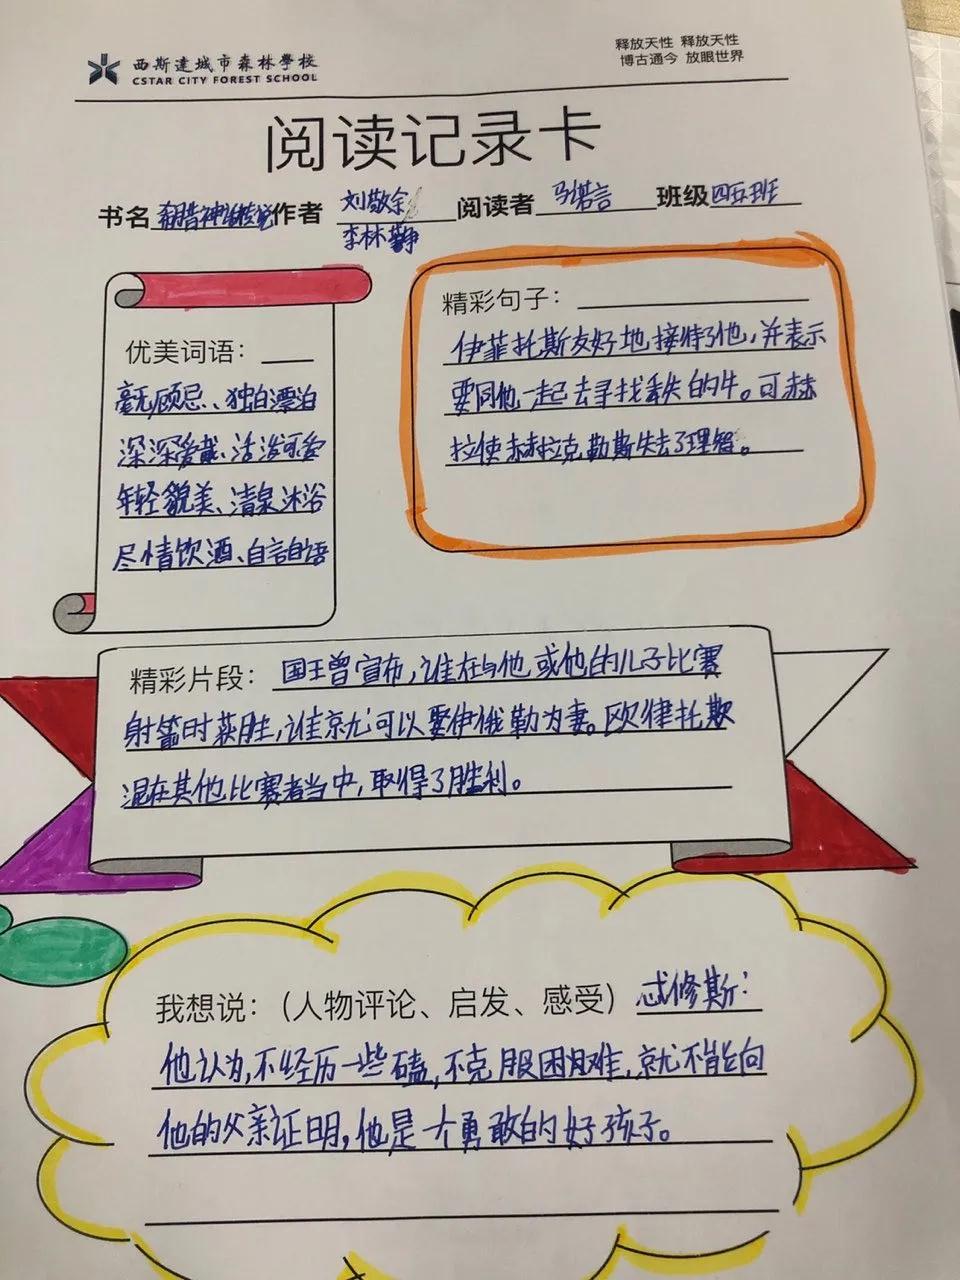 西斯达城市森林學校
CSTAR CITY FOREST SCHOOL
释放天性 释放天性
博古通今 放眼世界
阅读记录卡
书名 希腊神话 作者 刘敬余 阅读者 马诺言 班级 四五班
李林
优美词语：
毫无顾忌、独自漂泊
深深爱戴、活泼可爱
年轻貌美、清泉沐浴
尽情饮酒、自言自语
精彩句子：
伊菲托斯友好地接待了他，并表示
要同他一起去寻找丢失的牛。可赫
拉使赫拉克勒斯失去了理智。
精彩片段： 国王曾宣布，谁在与他或他的儿子比赛
射箭时获胜，谁就可以娶伊俄勒为妻。欧律托斯
混在其他比赛者当中，取得了胜利。
我想说：（人物评论、启发、感受） 忒修斯：
他认为，不经历一些磕，不克服困难，就不能向
他的父亲证明，他是一个勇敢的好孩子。